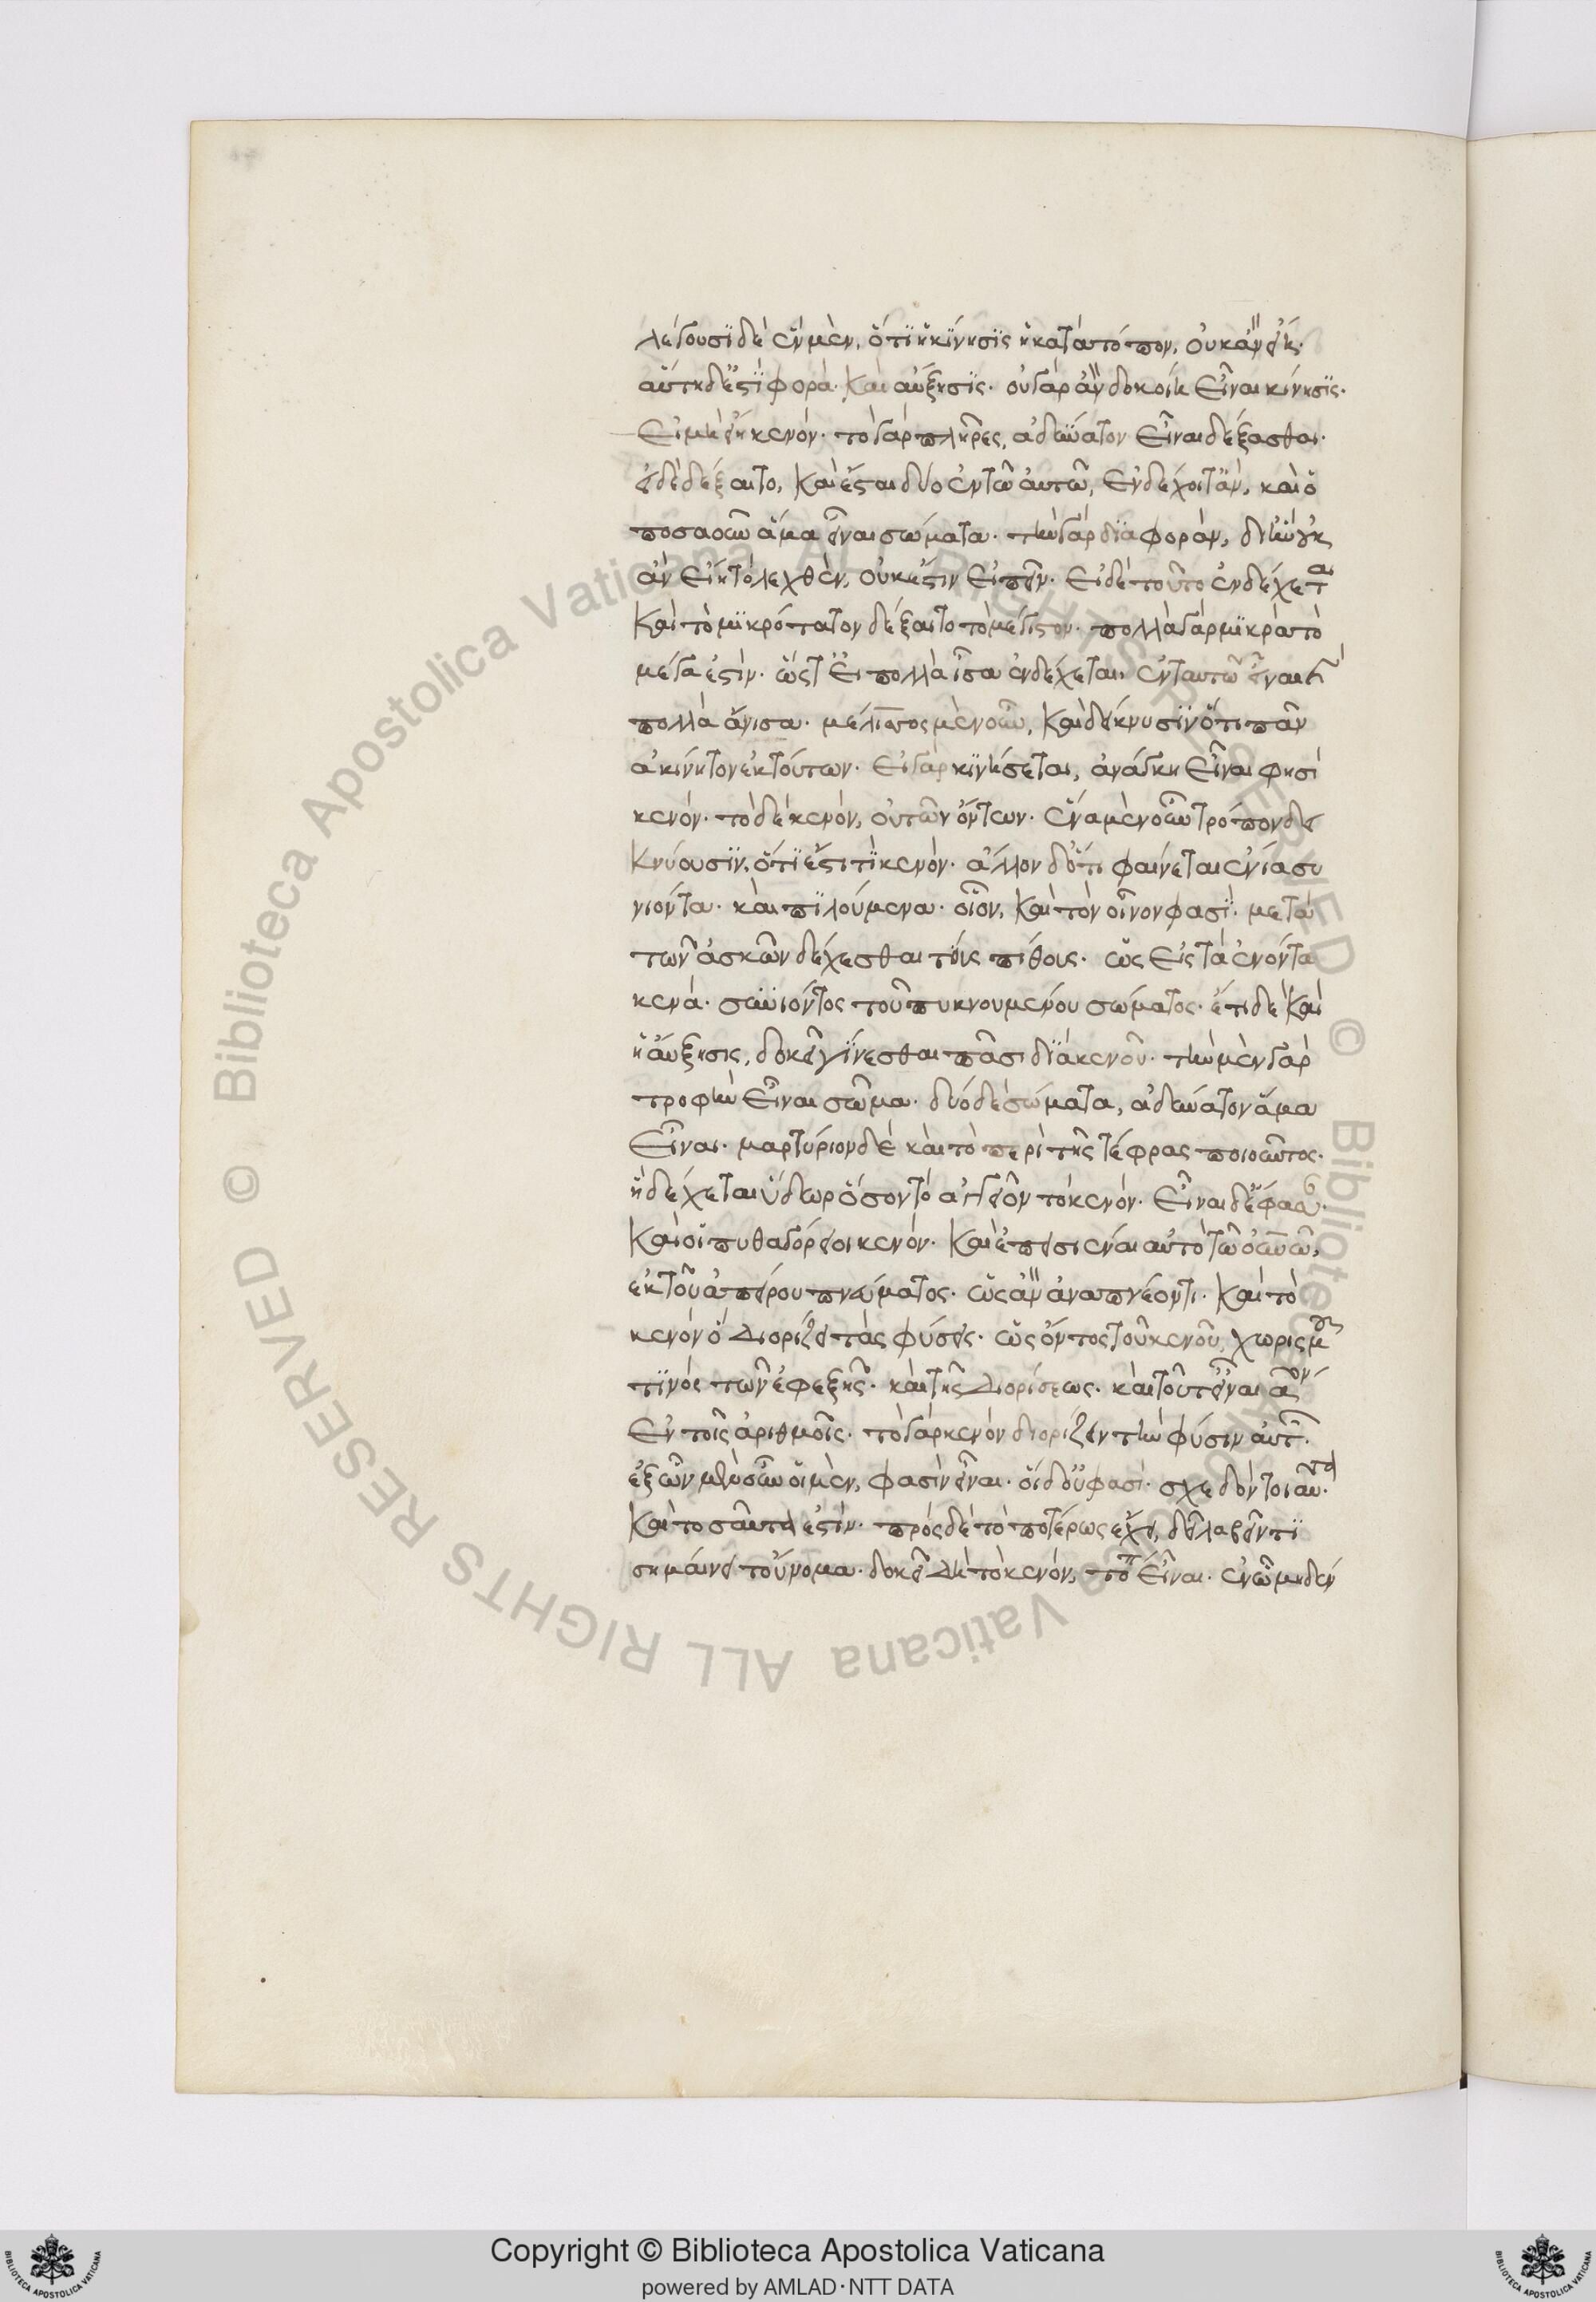 λέγουσι δὲ ἓν μὲν, ὅτι ἡ κίνησις ἡ κατὰ τόπον, οὐκ ἂν εἴη.
αὕτη δ' ἐστὶ φορὰ. καὶ αὔξησις. οὐ γὰρ ἂν δοκοίη εἶναι κίνησις.
εἰ μὴ εἴη κενόν. τὸ γὰρ πλῆρες, ἀδύνατον εἶναι δέξασθαι.
εἰ δὲ δέξαιτο, καὶ ἔσται δύο ἐν τῶ αὐτῶ, ἐνδέχοιτ' ἂν, καὶ ὁ
ποσαοῦν ἅμα εἶναι σώματα. τὴν γὰρ διαφορὰν, δι' ἣν οὐκ
ἂν εἴη τὸ λεχθὲν, οὐκ ἔστιν εἰπεῖν. εἰ δὲ τοῦτο ἐνδέχεται
καὶ τὸ μικρότατον δέξαιτο τὸ μέγιστον. πολλὰ γὰρ μικρὰ τὸ
μέγα ἐστίν. ὥστ' εἰ πολλὰ ἴσα ἐνδέχεται ἐν ταυτῶ εἶναι καὶ
πολλὰ ἄνισα. μέλισσος μὲν οὖν, καὶ δείκνυσιν ὅτι τὸ πᾶν
ἀκίνητον ἐκ τούτων. εἰ γὰρ κινήσεται, ἀνάγκη εἶναι φησὶ
κενόν. τὸ δὲ κενὸν, οὐ τῶν ὄντων. ἕνα μὲν οὖν τρόπον δει
κνύουσιν, ὅτι ἔστι τι κενὸν. ἄλλον δ' ὅτι φαίνεται ἔνια συ
νιόντα. καὶ πιλούμενα. οἷον, καὶ τὸν οἶνον φασὶ. μετὰ
τῶν ἀσκῶν δέχεσθαι τοὺς πίθους. ὡς εἰς τὰ ἐνόντα
κενά. συνιόντος τοῦ πυκνουμένου σώματος. ἔτι δὲ καὶ
ἡ αὔξησις, δοκεῖ γίνεσθαι πᾶσι διὰ κενοῦ. τὴν μὲν γὰρ
τροφὴν εἶναι σῶμα. δύο δὲ σώματα, ἀδύνατον ἅμα
εἶναι. μαρτύριον δὲ καὶ τὸ περὶ τῆς τέφρας ποιοῦντος.
ἣ δέχεται ὕδωρ ὅσον τὸ ἀγγεῖον τὸ κενόν. εἶναι δ' ἔφασαν
καὶ οἱ πυθαγόρειοι κενόν. καὶ ἐπεισιέναι αὐτὸ τῶ οὐνῶ,
ἐκ τοῦ ἀπείρου πνεύματος. ὡς ἂν ἀναπνέοντι. καὶ τὸ
κενόν ὃ διορίζει τὰς φύσεις. ὡς ὄντος τοῦ κενοῦ, χωρισμοῦ
τινὸς τῶν ἐφεξῆς. καὶ τῆς διορίσεως. καὶ τοῦτ' εἶναι πρῶτον
ἐν τοῖς ἀριθμοῖς. τὸ γὰρ κενὸν διορίζειν τὴν φύσιν αὐτῶν.
ἐξ ὧν μὲν οὖν οἱ μὲν, φασὶν εἶναι. οἱ δ' οὔ φασὶ. σχεδὸν τοιαῦτα
καὶ τοσαῦτα ἐστίν. πρὸς δὲ τὸ ποτέρως ἔχει, δεῖ λαβεῖν τί
σημαίνει τοὔνομα. δοκεῖ δὴ τὸ κενὸν, τόπος εἶναι. ἐν ὧ μηδὲν
Copyright © Biblioteca Apostolica Vaticana
powered by AMLAD·NTT DATA